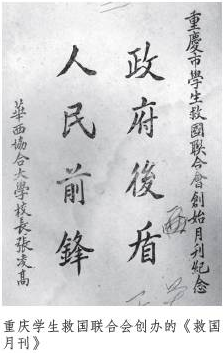 重慶市學生救國联合會創始月刊紀念
政府後盾
人民前鋒
華西協合大學校長張凌高
重庆学生救国联合会创办的《救国
月刊》